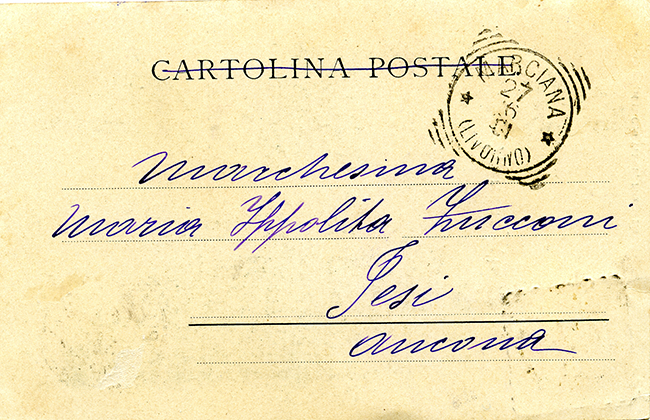 CARTOLINA POSTALE
MARCIANA
27
5
(LIVORNO)
Marchesina
Maria Ippolita Zucconi
Jesi
Ancona